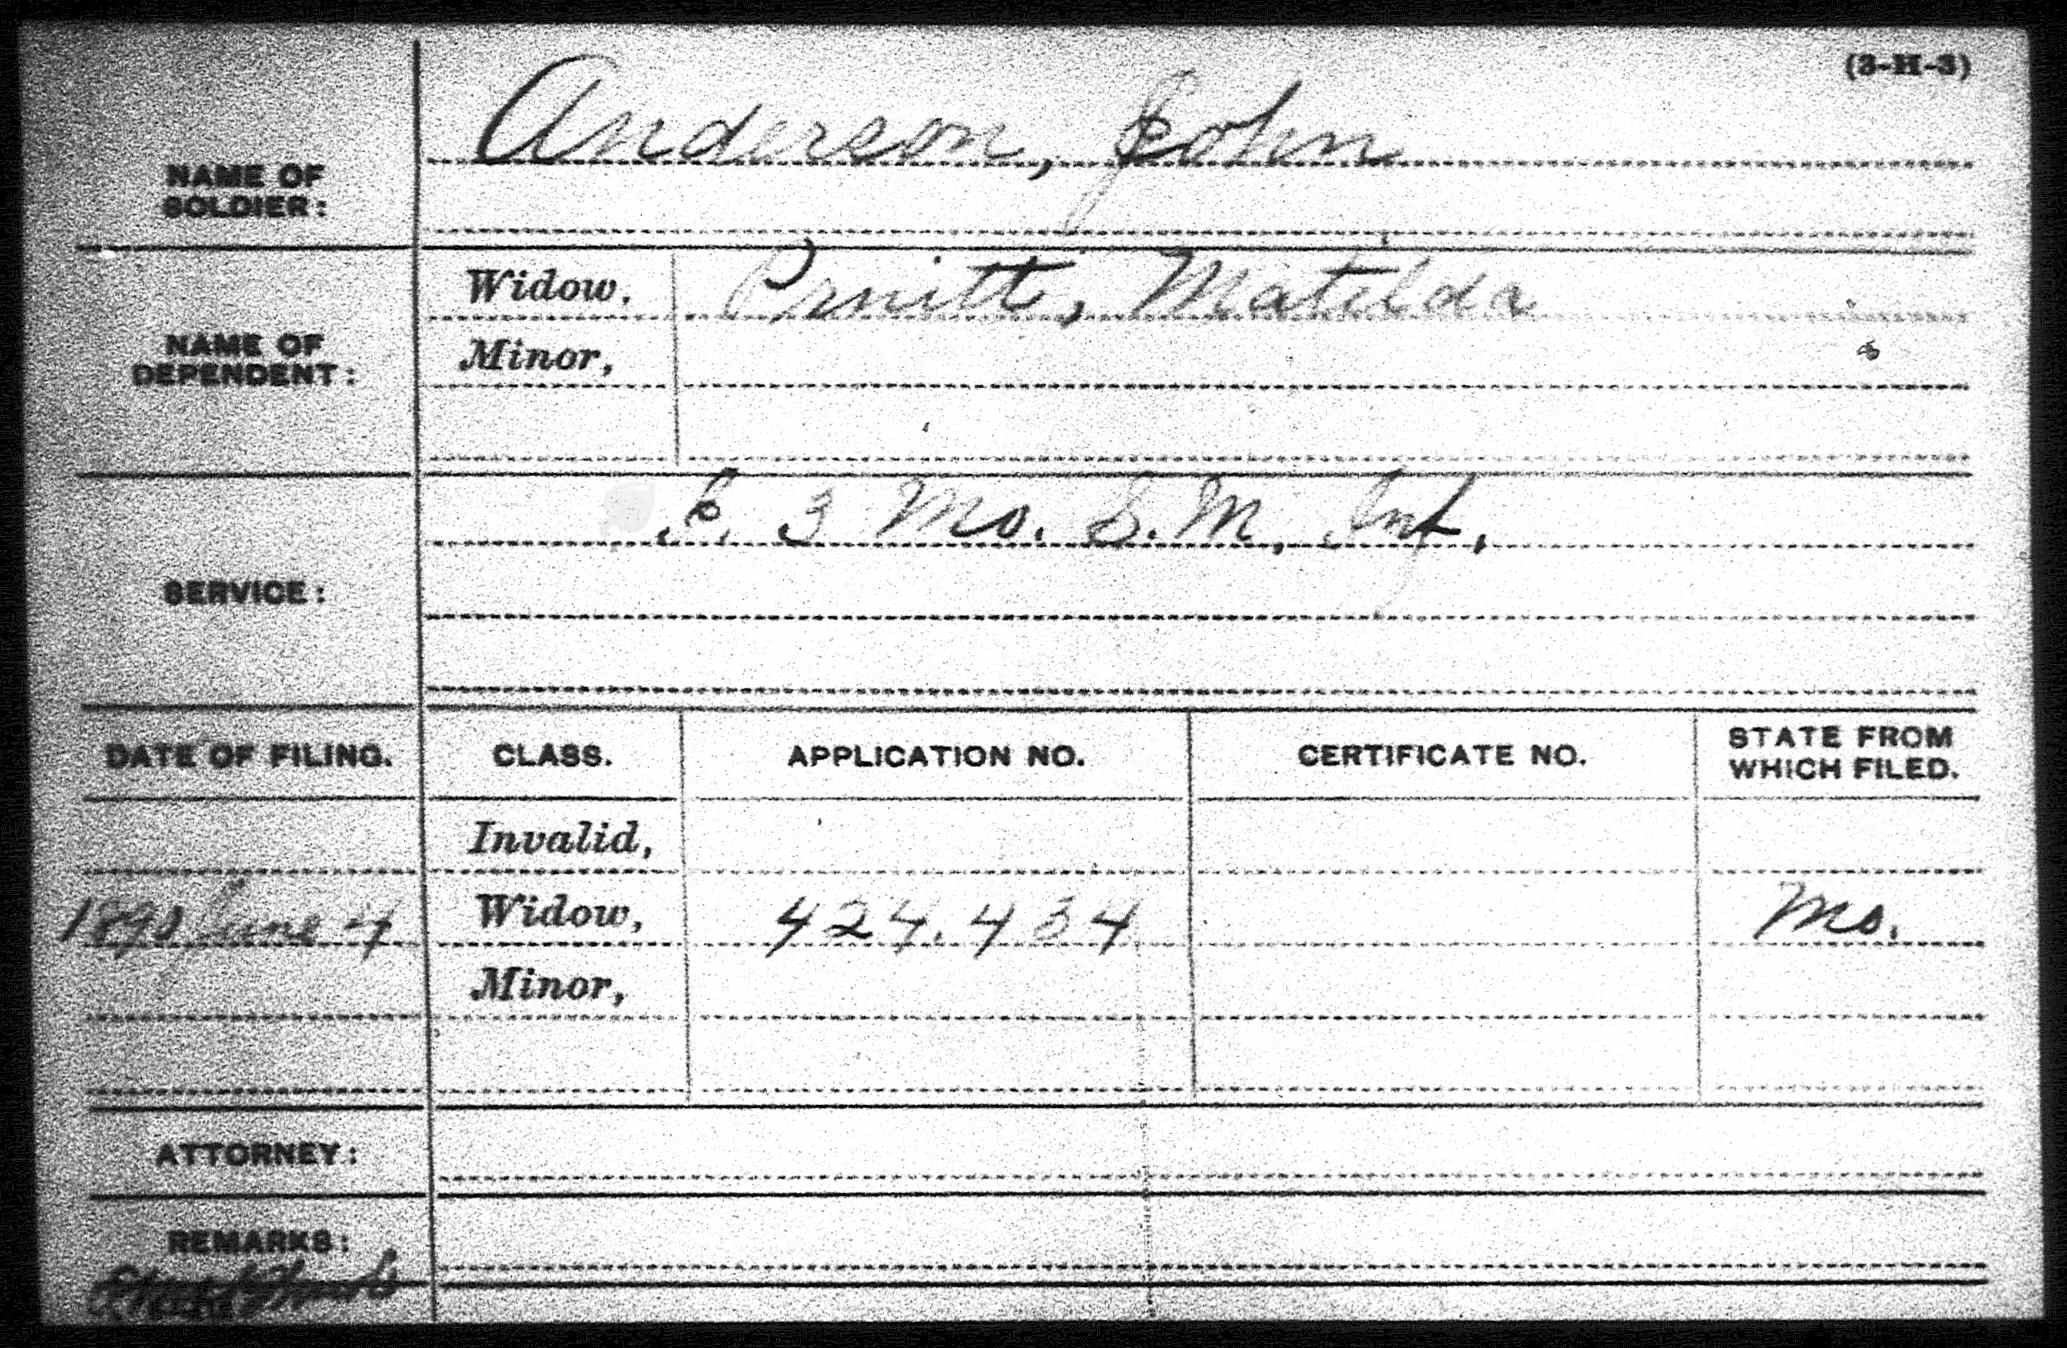 (3-H-3)
NAME OF SOLDIER: Anderson, John
NAME OF DEPENDENT:
Widow, Pruitt, Matilda
Minor,
SERVICE: 3 Mo. S. M. Inf.
DATE OF FILING. CLASS. APPLICATION NO. CERTIFICATE NO. STATE FROM WHICH FILED.
Invalid,
1890 June 4 Widow, 424.434 Mo.
Minor,
ATTORNEY:
REMARKS: